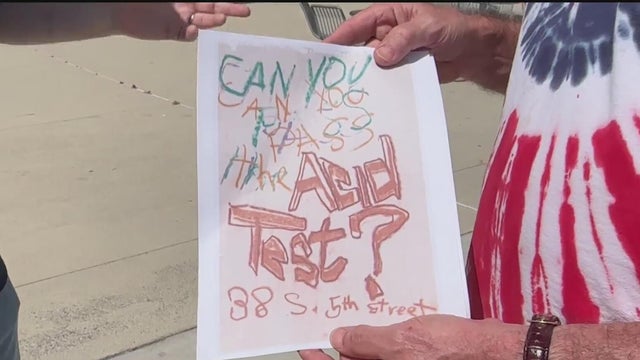 CAN YOU
CAN YOU
PASS
the Acid
Test?
38 S. 5th street